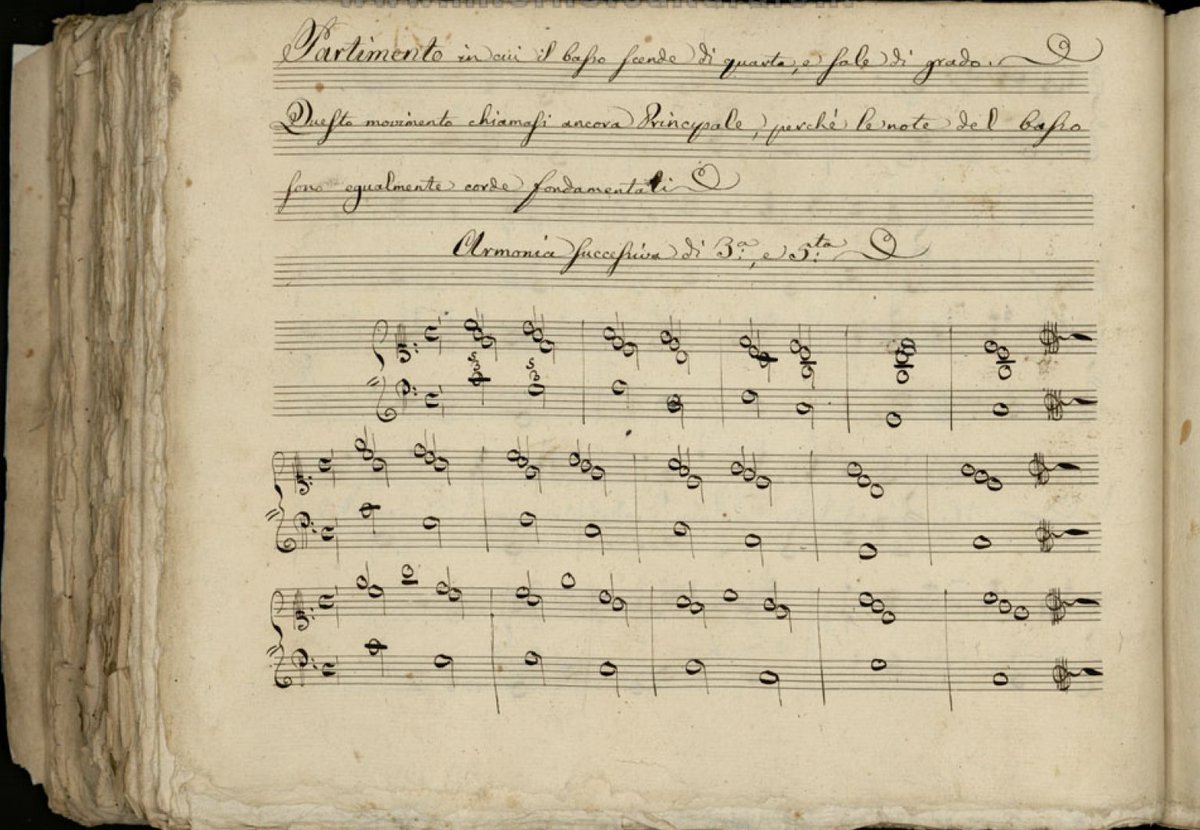 Partimento in cui il basso scende di quarta, e sale di grado.
Questo movimento chiamasi ancora Principale, perché le note del basso
sono egualmente corde fondamentali
Armonia successiva di 3.a, e 5.ta
5 5
3 3